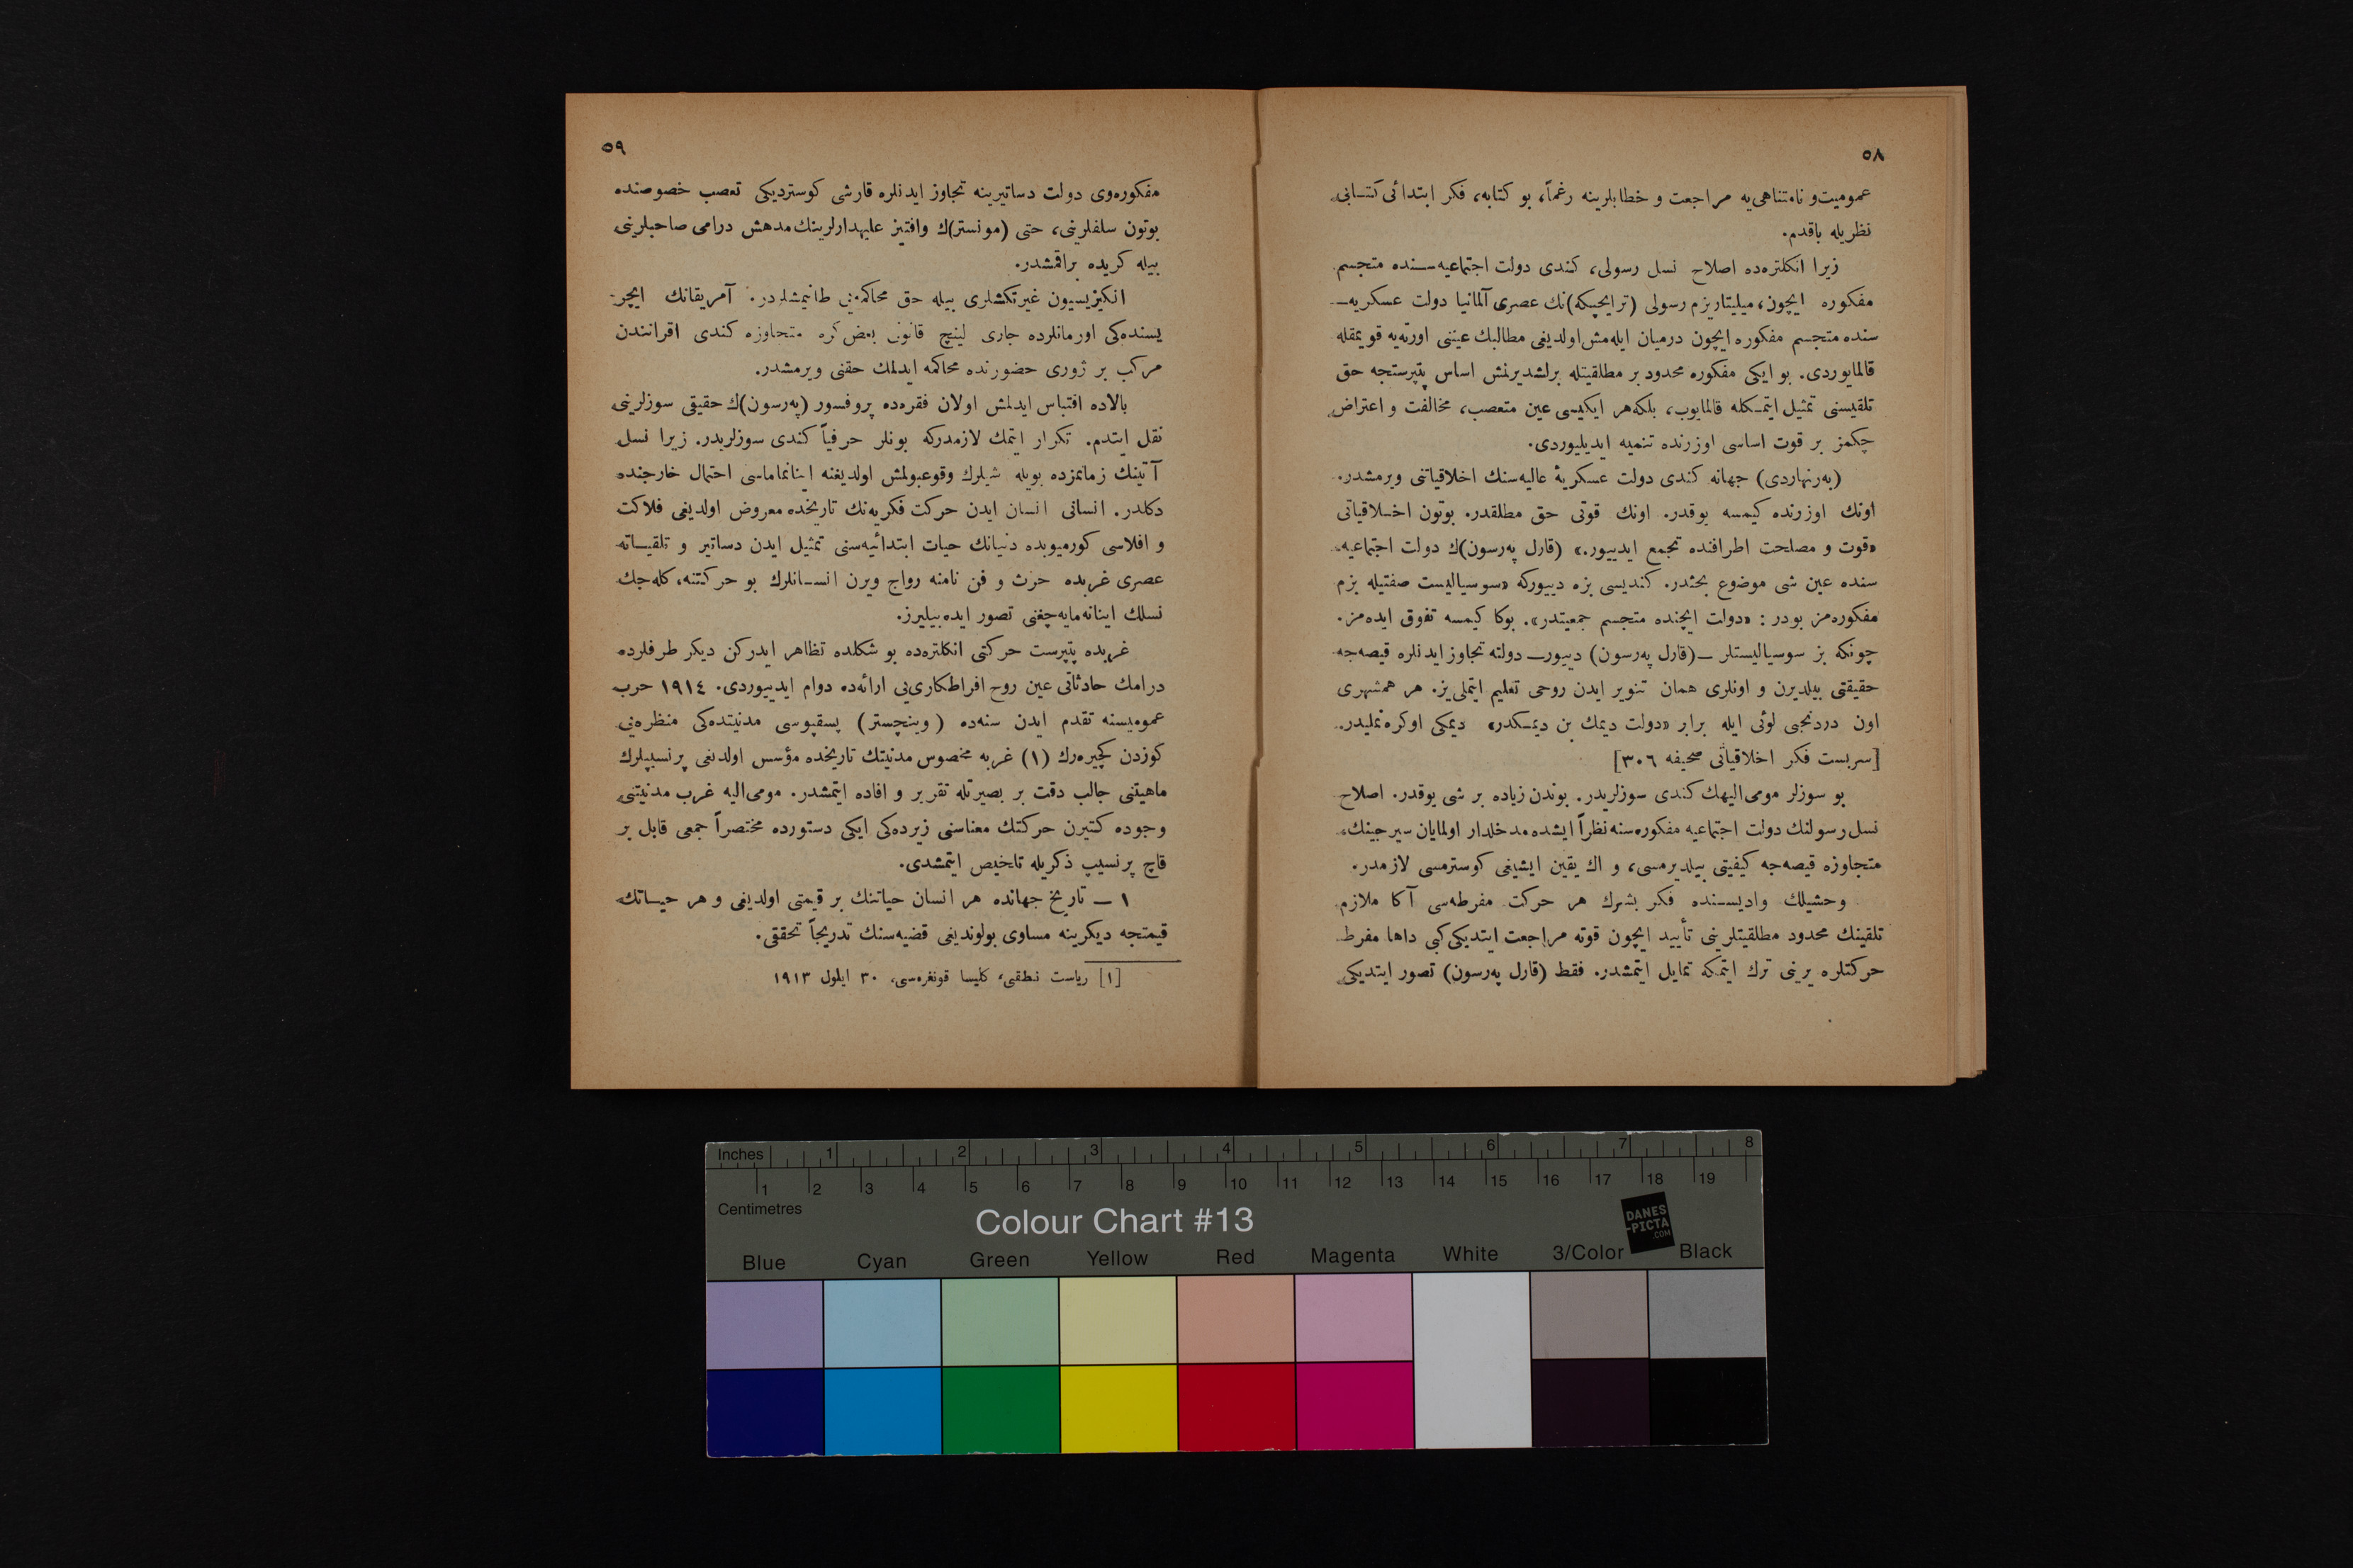 ٥٨
عموميت‌و نامتناهى‌يه مراجعت و خطابلرينه رغماً، بو كتابه، فكر ابتدائى كتسابى
نظريله باقدم.
زيرا انكلتره‌ده اصلاح نسل رسولى، كندى دولت اجتماعيه‌سنده متجسم
مفكوره ايچون، ميليتاريزم رسولى (ترايچيكه)نك عصرى آلمانيا دولت عسكريه‌ـ
سنده متجسم مفكوره ايچون درميان ايله‌مش اولديغى مطالبك عيننى اورته‌يه قويمقله
قالمايوردى. بو ايكى مفكوره محدود بر مطلقيتله برلشديرلمش اساس پتپرستجه حق
تلقيسنى تمثيل ايتمكله قالمايوب، بلكه‌هر ايكيسى عين متعصب، مخالفت و اعتراض
چكمز بر قوت اساسى اوزرنده تنميه ايديليوردى.
(به‌رنهاردى) جهانه كندى دولت عسكريۀ عاليه‌سنك اخلاقياتنى ويرمشدر.
اونك اوزرنده كيمسه يوقدر. اونك قوتى حق مطلقدر. بوتون اخلاقياتى
«قوت و مصلحت اطرافنده تجمع ايدييور.» (قارل په‌رسون)ك دولت اجتماعيه‌ـ
سنده عين شى موضوع بحثدر. كنديسى بزه دييوركه «سوسياليست صفتيله بزم
مفكوره‌مز بودر : «دولت ايچنده متجسم جمعيتدر». بوكا كيمسه تفوق ايده‌مز.
چونكه بز سوسياليستلر ــ(قارل په‌رسون) دييورــ دولته تجاوز ايدنلره قيصه‌جه
حقيقتى بيلديرن و اونلرى همان تنوير ايدن روحى تعليم ايتملى‌يز. هر همشهرى
اون دردنجى لوئى ايله برابر «دولت ديمك بن ديمكدر» ديمكى اوكره‌نمليدر.
[سربست فكر اخلاقياتى صحيفه ٣٠٦]
بو سوزلر مومى‌اليهك كندى سوزلريدر. بوندن زياده بر شى يوقدر. اصلاح
نسل رسولنك دولت اجتماعيه مفكوره‌سنه نظراً ايشده مدخلدار اولمايان سيرجينك،
متجاوزه قيصه‌جه كيفيتى بيلديرمسى، و اك يقين ايشيغى كوسترمسى لازمدر.
وحشيلك واديسنده فكر بشرك هر حركت مفرطه‌سى آكا ملازم
تلقينك محدود مطلقيتلرينى تأييد ايچون قوته مراجعت ايتديكى كبى داها مفرط
حركتلره يرينى ترك ايتمكه تمايل ايتمشدر. فقط (قارل په‌رسون) تصور ايتديكى
٥٩
مفكوره‌وى دولت دساتيرينه تجاوز ايدنلره قارشى كوستره‌ديكى تعصب خصوصنده
بوتون سلفلرينى، حتى (مونستر)ك وافتيز عليهدارلرينك مدهش درامى صاحبلرينى
بيله كريده براقمشدر.
انكيزيسيون غيرتكشلرى بيله حق محاكمه‌يى طانيمشلردر. آمريقانك ايچرـ
يسنده‌كى اورمانلرده جارى لينچ قانونى بعض كره متجاوزه كندى اقرانندن
مركب بر ژورى حضورنده محاكمه ايدلمك حقنى ويرمشدر.
بالاده اقتباس ايدلمش اولان فقره‌ده پروفسور (په‌رسون)ك حقيقى سوزلرينى
نقل ايتدم. تكرار ايتمك لازمدركه بونلر حرفياً كندى سوزلريدر. زيرا نسل
آتينك زمانمزده بويله شيلرك وقوعبولمش اولديغنه اينانماماسى احتمال خارجنده
دكلدر. انسانى انسان ايدن حركت فكريه‌نك تاريخده معروض اولديغى فلاكت
و افلاسى كورميوبده دنيانك حيات ابتدائيه‌سنى تمثيل ايدن دساتير و تلقياته
عصرى غربده حرث و فن نامنه رواج ويرن انسانلرك بو حركتنه، كله‌جك
نسلك اينانه‌مايه‌جغنى تصور ايده‌بيليرز.
غربده پتپرست حركتى انكلتره‌ده بو شكلده تظاهر ايدركن ديكر طرفلرده
درامك حادثاتى عين روح افراطكارى‌يى ارائه‌ده دوام ايدييوردى. ١٩١٤ حرب
عموميسنه تقدم ايدن سنه‌ده (وينچستر) پسقپوسى مدنيتده‌كى منظره‌يى
كوزدن كچيره‌رك (١) غربه مخصوس مدنيتك تاريخده مؤسس اولدىغى پرنسيپلرك
ماهيتنى جالب دقت بر بصيرتله تقرير و افاده ايتمشدر. مومى‌اليه غرب مدنيتنى
وجوده كتيرن حركتك معناسنى زيرده‌كى ايكى دستورده مختصراً جمعى قابل بر
قاچ پرنسيپ ذكريله تلخيص ايتمشدى.
١ ــ تاريخ جهانده هر انسان حياتنك بر قيمتى اولديغى و هر حياتك
قيمتجه ديكرينه مساوى بولونديغى قضيه‌سنك تدريجاً تحققى.
[١] رياست نطقى، كليسا قونغره‌سى، ٣٠ ايلول ١٩١٣
Inches 1 2 3 4 5 6 7 8
1 2 3 4 5 6 7 8 9 10 11 12 13 14 15 16 17 18 19
Centimetres
Colour Chart #13
DANES
-PICTA
.COM
Blue Cyan Green Yellow Red Magenta White 3/Color Black